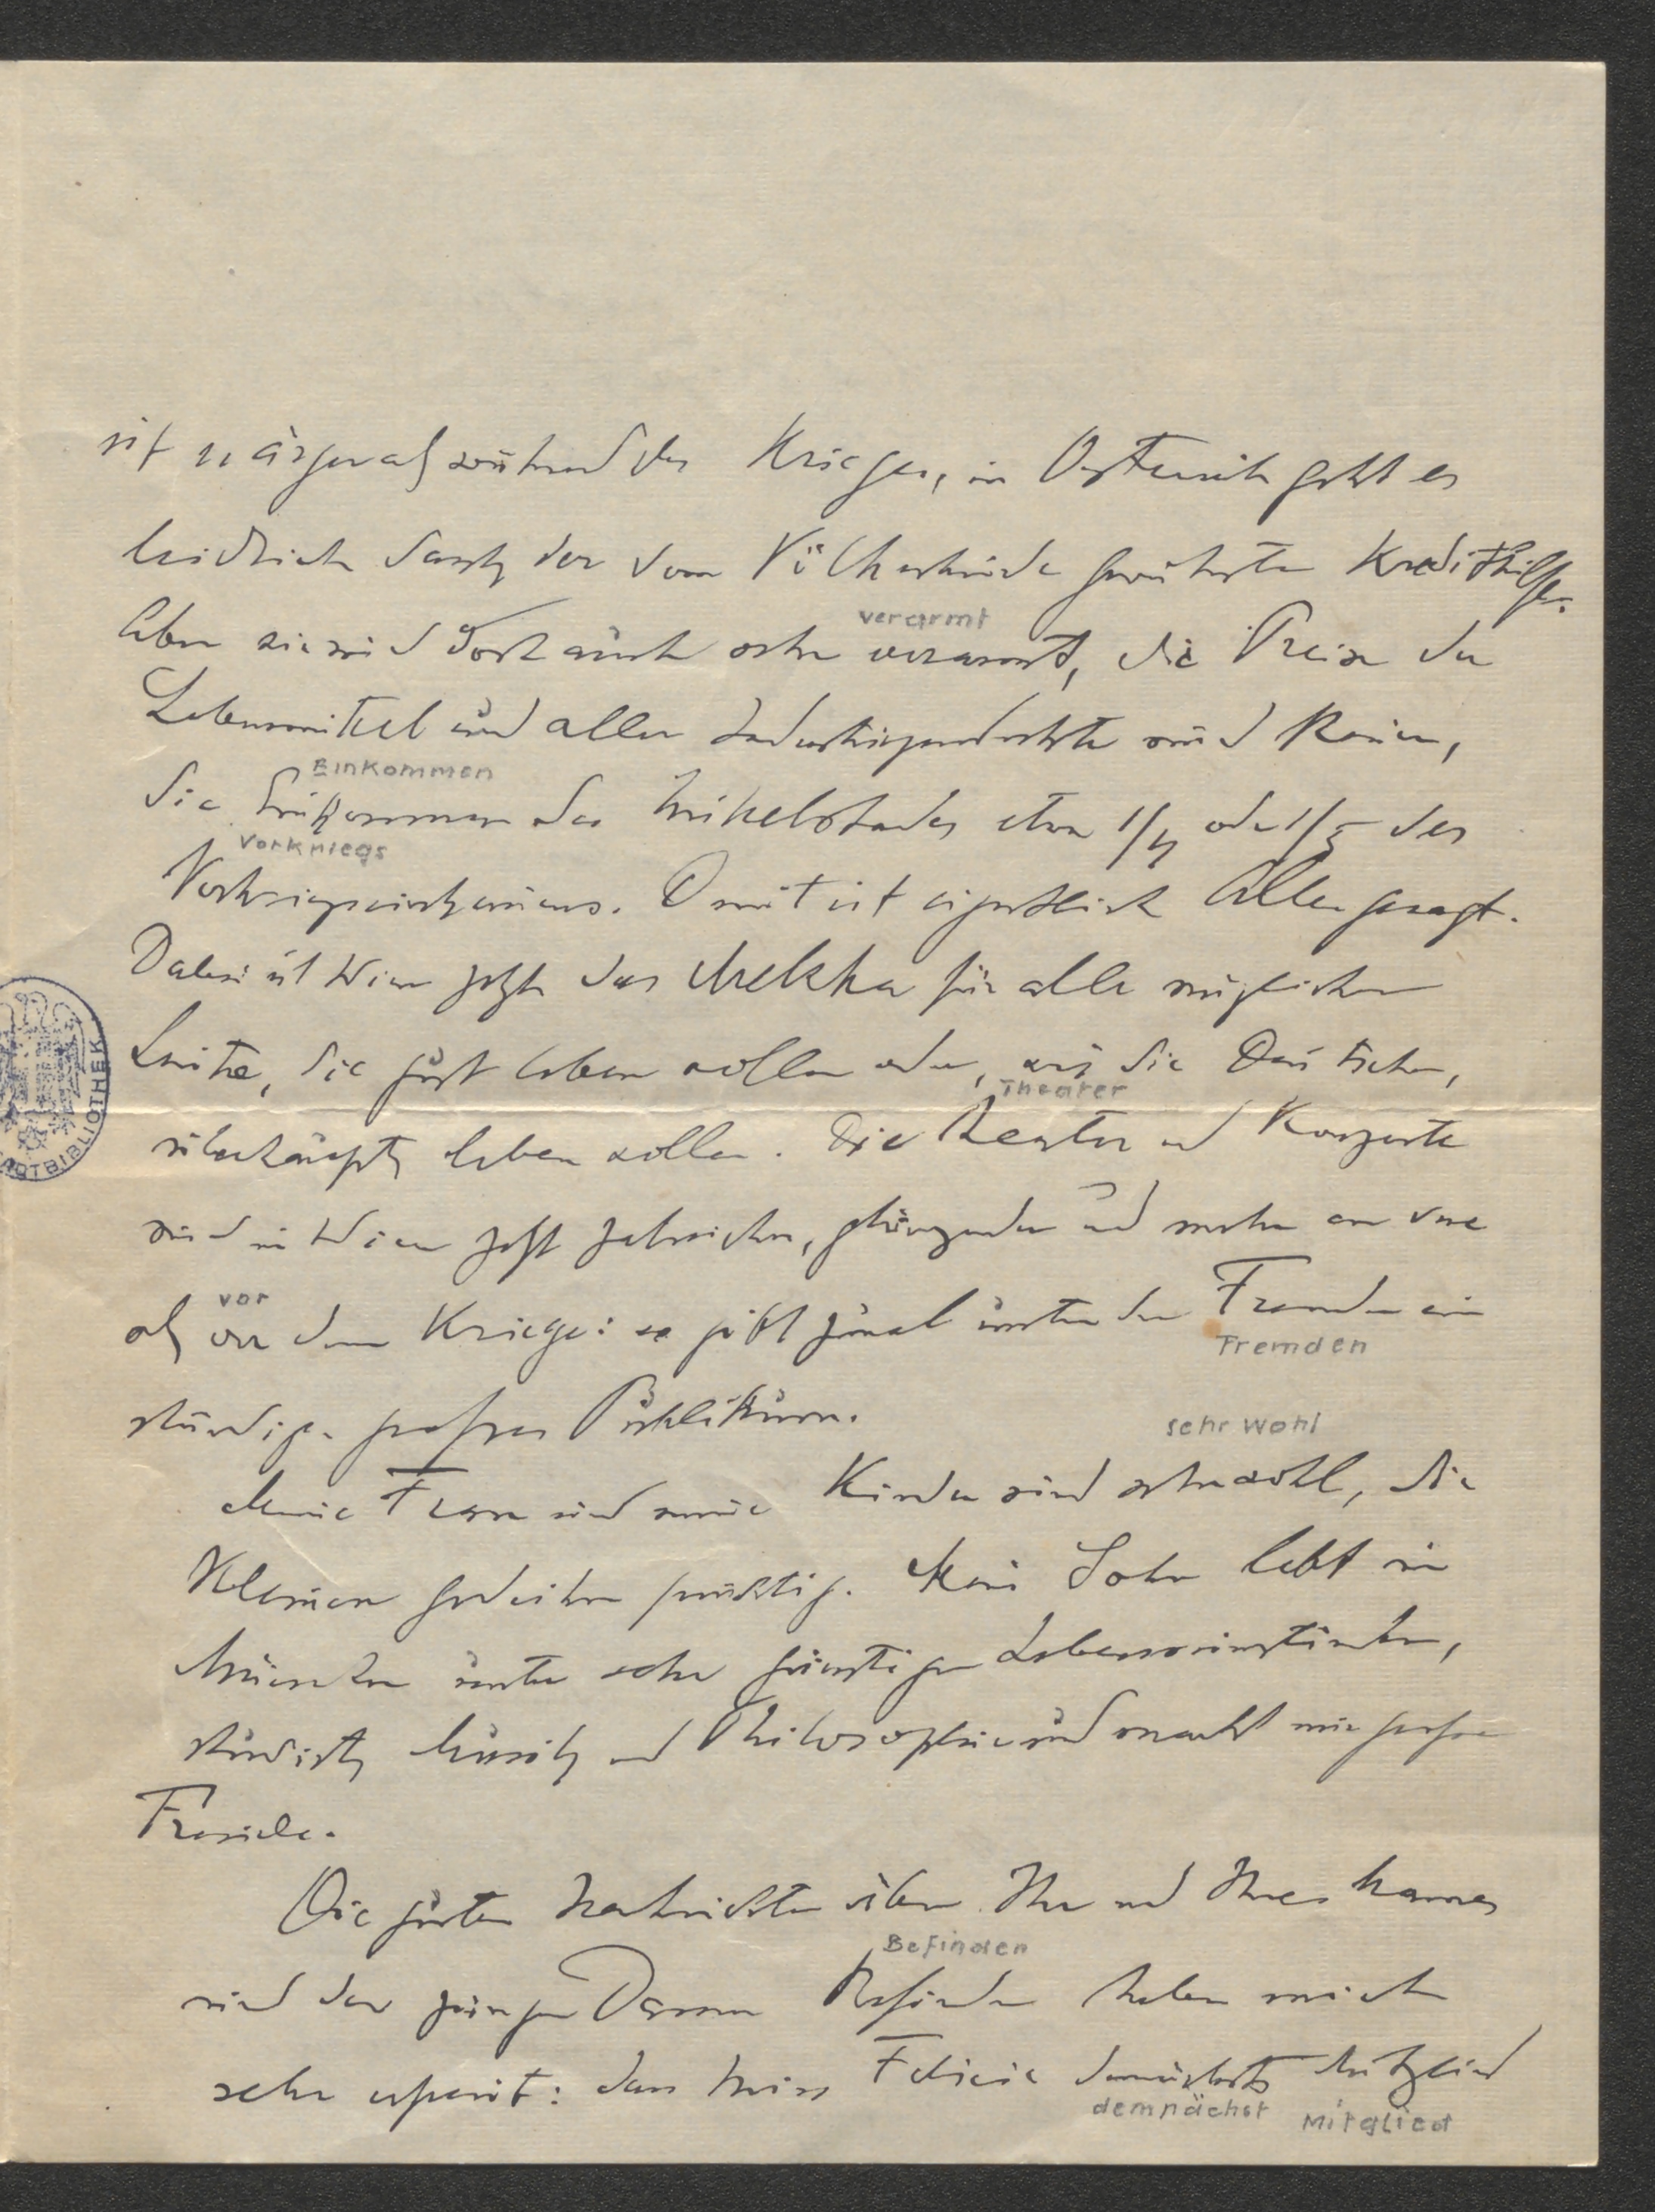 ist es ärger als während des Krieges, in Österreich geht es
leidlich dank der vom Völkerbunde gewährten Kredithilfe.
verarmt
Aber sie sind dort auch sehr verarmt, die Preise der
Lebensmittel und aller Industrieprodukte sind
Einkommen
die Einkommen des Mittelstandes etwa 1/4 oder 1/5 des
Vorkriegs
Vorkriegseinkommens. Damit ist eigentlich Alles gesagt.
Dabei ist Wien jetzt das Mekka für alle möglichen
Leute, die gut leben wollen oder, wie die Deutschen,
Theater
überhaupt leben wollen. Die Theater und Konzerte
sind in Wien jetzt zahlreicher, glänzender und mehr en vue
vor
als vor dem Kriege: es gibt zumal unter den Fremden ein
Fremden
ständiges grosses Publikum.
sehr wohl
Meine Frau und meine Kinder sind sehr wohl, die
Kleinen gedeihen prächtig. Mein Sohn lebt in
München unter sehr günstigen Lebensumständen,
studiert Musik und Philosophie und macht mir grosse
Freude.
Die guten Nachrichten über Ihr und Ihres Mannes
Befinden
und der jungen Damen Befinden haben mich
sehr erfreut: dass Miss Felicie demnächst Mitglied
demnächst Mitglied
STADTBIBLIOTHEK